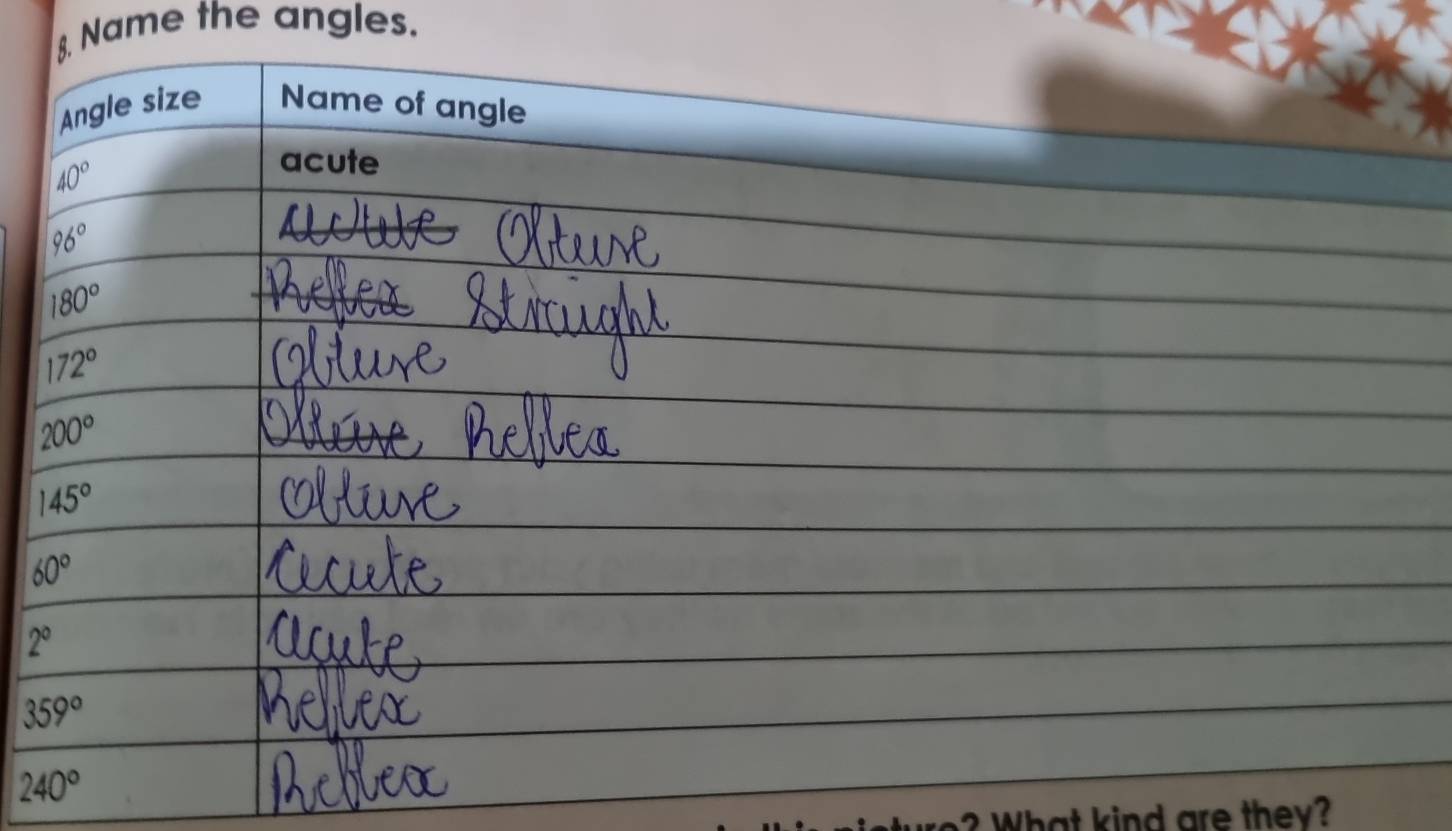 8. Name the angles.
Angle size Name of angle
40° acute
96° acute Obtuse
180° Reflex Straight
172° Obtuse
200° Obtuse Reflex
145° obtuse
60° acute
2° acute
359° Reflex
240° Reflex
? What kind are they?